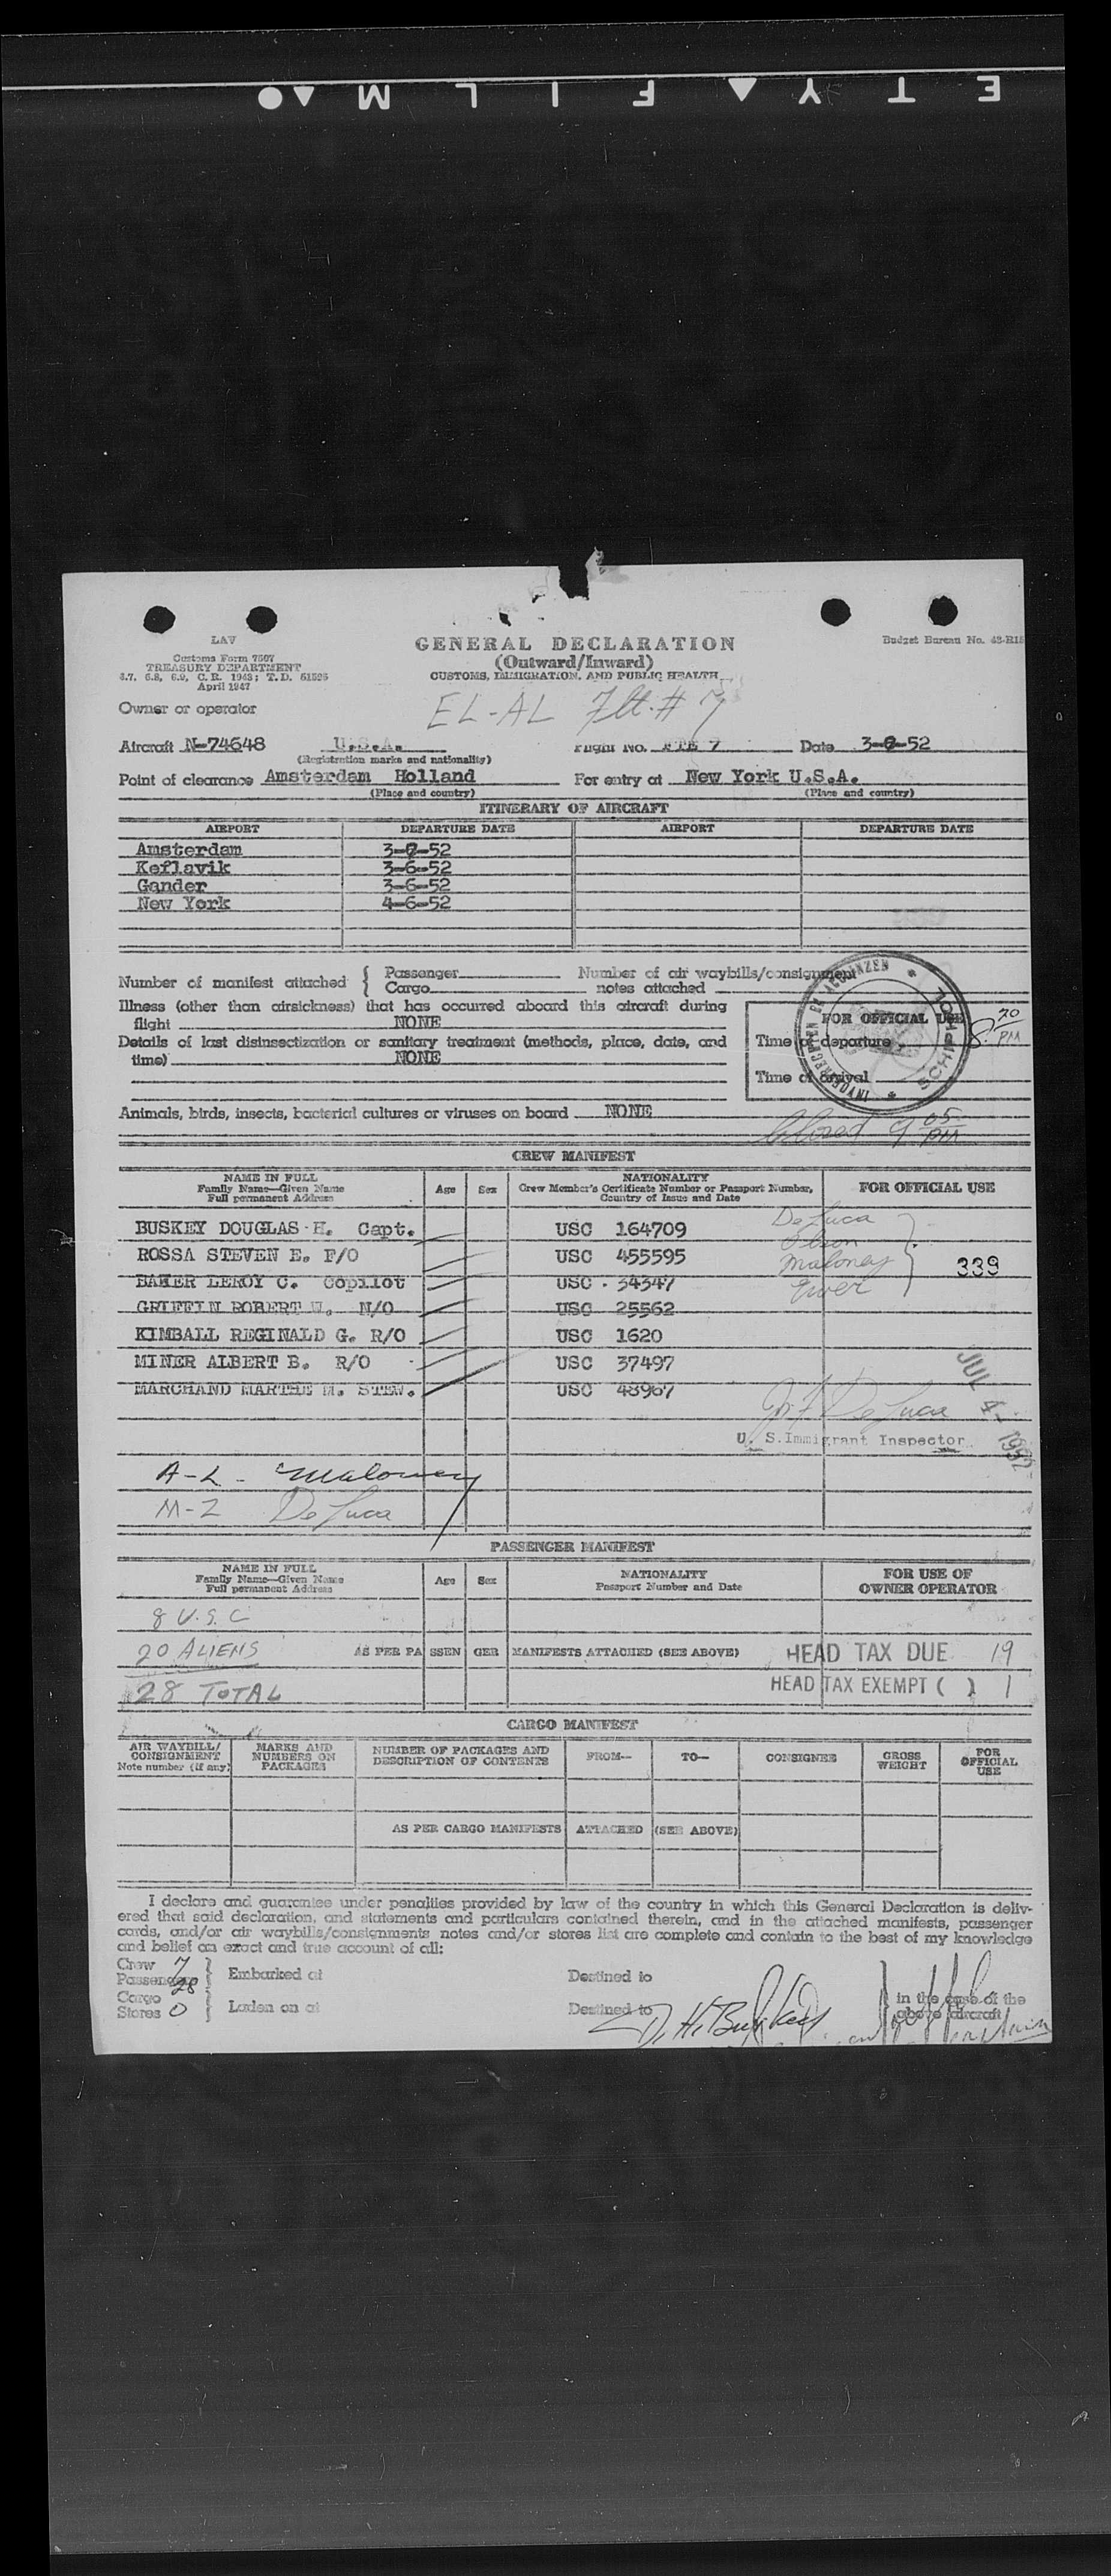 E T Y ▲ F I L M ▲ ●
LAV
Customs Form 7507
TREASURY DEPARTMENT
4.7, 6.8, 6.9, C. R. 1943; T. D. 51595
April 1947
GENERAL DECLARATION
(Outward/Inward)
CUSTOMS, IMMIGRATION, AND PUBLIC HEALTH
Budget Bureau No. 48-R15
Owner or operator EL-AL Flt. # 7
Aircraft N-74648 U.S.A. Flight No. 7 Date 3-6-52
(Registration marks and nationality)
Point of clearance Amsterdam Holland For entry at New York U.S.A.
(Place and country) (Place and country)
ITINERARY OF AIRCRAFT
AIRPORT DEPARTURE DATE AIRPORT DEPARTURE DATE
Amsterdam 3-6-52
Keflavik 3-6-52
Gander 3-6-52
New York 4-6-52
Number of manifest attached { Passenger Number of air waybills/consignment
Cargo notes attached
Illness (other than airsickness) that has occurred aboard this aircraft during
flight NONE
FOR OFFICIAL USE
Details of last disinsectization or sanitary treatment (methods, place, date, and
time) NONE
Time of departure 8 20 PM
Time of arrival
SCHIPHOL
Animals, birds, insects, bacterial cultures or viruses on board NONE
9 05 PM
CREW MANIFEST
NAME IN FULL
Family Name—Given Name
Full permanent Address
Age Sex
NATIONALITY
Crew Member's Certificate Number or Passport Number,
Country of Issue and Date
FOR OFFICIAL USE
BUSKEY DOUGLAS H. Capt. USC 164709 De Luca
ROSSA STEVEN E. F/O USC 455595
BAKER LEROY C. Copilot USC 34347 Maloney 339
GRIFFIN ROBERT W. N/O USC 25562
KIMBALL REGINALD G. R/O USC 1620
MINER ALBERT B. R/O USC 37497
MARCHAND MARTHE M. STEW. USC 48967
JUL 4- 1952
De Luca
U. S. Immigrant Inspector
A-L - Maloney
M-Z De Luca
PASSENGER MANIFEST
NAME IN FULL
Family Name—Given Name
Full permanent Address
Age Sex
NATIONALITY
Passport Number and Date
FOR USE OF
OWNER OPERATOR
8 U.S.C
20 ALIENS AS PER PASSENGER MANIFESTS ATTACHED (SEE ABOVE) HEAD TAX DUE 19
28 TOTAL HEAD TAX EXEMPT ( ) 1
CARGO MANIFEST
AIR WAYBILL/
CONSIGNMENT
Note number (if any)
MARKS AND
NUMBERS ON
PACKAGES
NUMBER OF PACKAGES AND
DESCRIPTION OF CONTENTS
FROM— TO— CONSIGNEE
GROSS
WEIGHT
FOR
OFFICIAL
USE
AS PER CARGO MANIFESTS ATTACHED (SEE ABOVE)
I declare and guarantee under penalties provided by law of the country in which this General Declaration is deliv-
ered that said declaration, and statements and particulars contained therein, and in the attached manifests, passenger
cards, and/or air waybills/consignments notes and/or stores list are complete and contain to the best of my knowledge
and belief an exact and true account of all:
Crew 7
Passengers 28 } Embarked at Destined to
Cargo
Stores 0 } Laden on at Destined to
D. H. Buskey
in the case of the
above aircraft